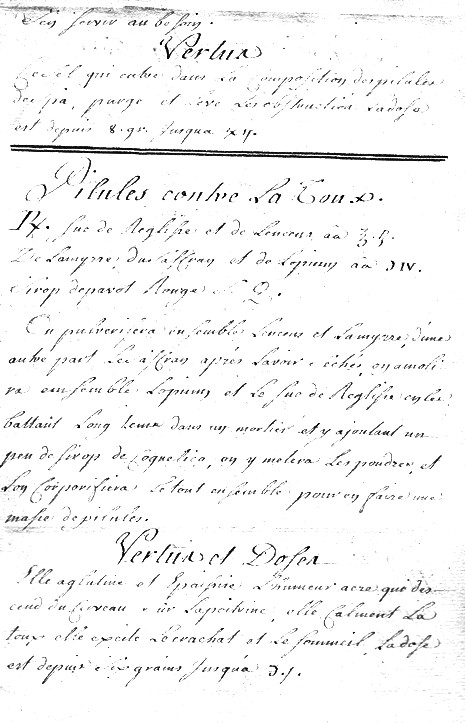 S'en servir au besoin.
Vertus
Ce sel qui entre dans La Composition des pilules
de purge et Leve Les obstruction La dose
est depuis 8. gr. Jusqua
Pilules contre La Toux.
Suc de Reglisse et de Lencens aa
De Lamyrre, du saffran et de Lopium aa
Sirop de pavot Rouge S. Q.
On pulverisera ensemble Lencens et Lamyrre, d'une
autre part Le saffran aprés Lavoir séché, on amoli
ra ensemble Lopium et Le Suc de Reglisse en les
battant Long tems dans un mortier et y ajoutant un
peu de Sirop de Coquelico, on y melera Les poudres, et
Lon Corporifiera Le tout ensemble pour en faire une
masse de pilules.
Vertus et Doses
Elle aglutine et Epaissire L'humeur acre qui des-
cend du Cerveau sur Lapoitrine, elle Calment La
toux elle excite Le crachat et Le sommeil, La dose
est depuis six grains Jusqua